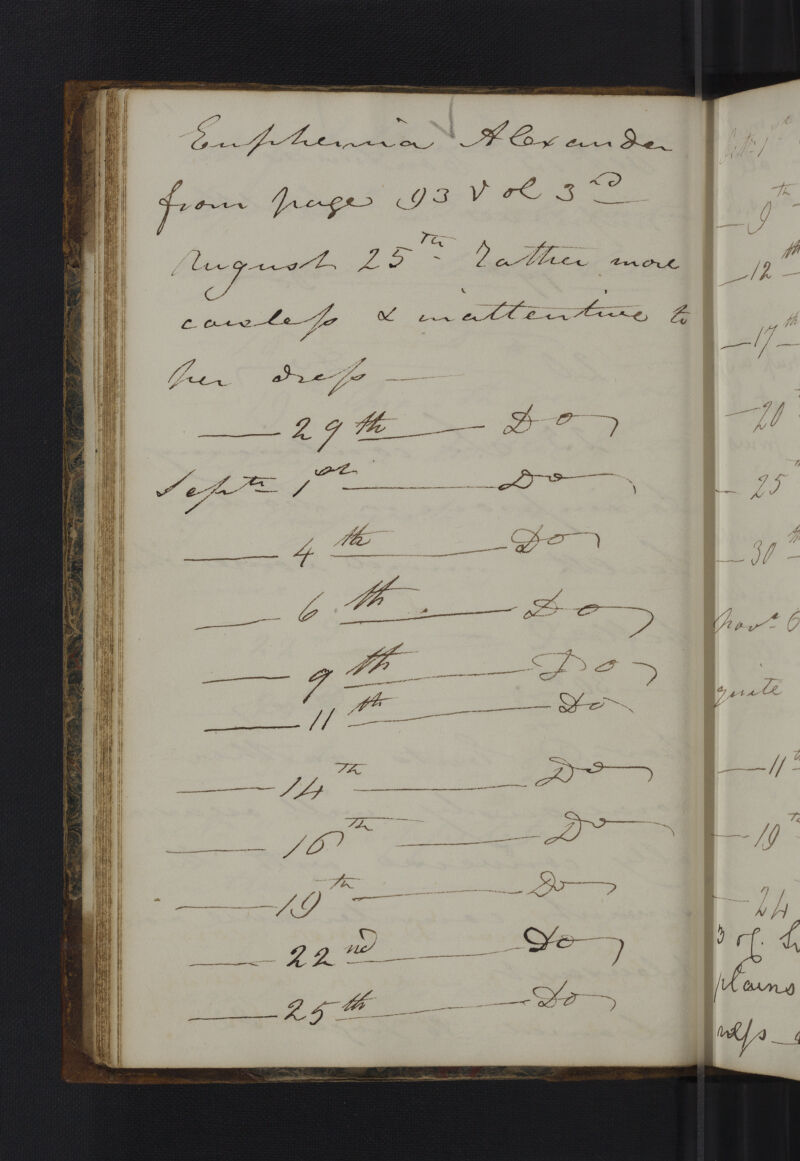 Euphemia Alexander
from page 93 Vol 3rd
August 25th Rather more
careless & inattentive to
her dress —
— 29th — Do
Septr 1st — Do
— 4th — Do
— 6th — Do
— 9th — Do
— 11th — Do
— 14th — Do
— 16th — Do
— 19th — Do
— 22nd — Do
— 25th — Do
— 9th
— 12th
— 17th —
— 20
— 25
— 30th
Novr 6
quite
— 11th
— 19th
— 24
plains